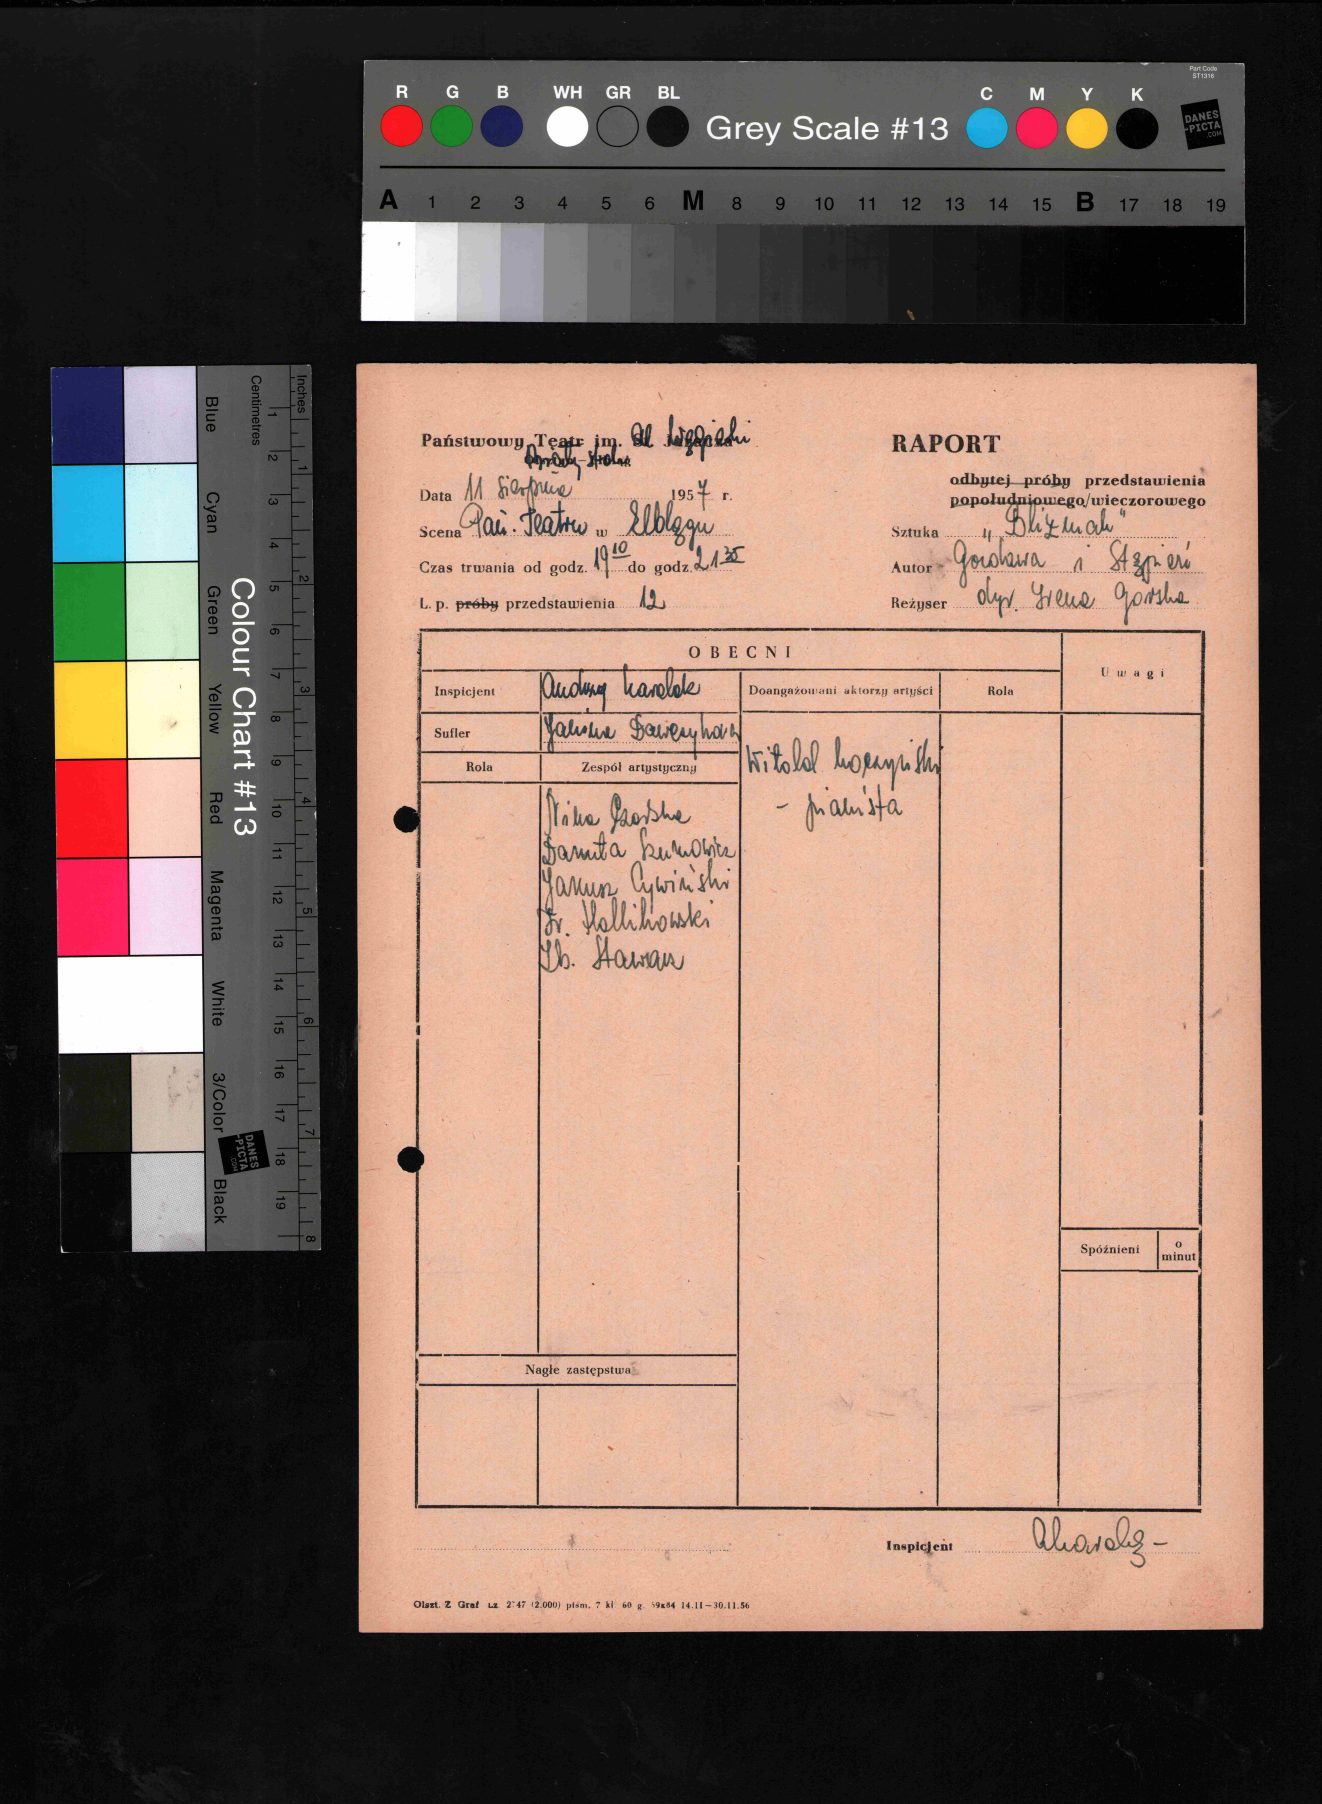 Part Code
ST1316
R G B WH GR BL Grey Scale #13 C M Y K
DANES
-PICTA
.COM
A 1 2 3 4 5 6 M 8 9 10 11 12 13 14 15 B 17 18 19
Colour Chart #13
Blue Cyan Green Yellow Red Magenta White 3/Color Black
Centimetres 1 2 3 4 5 6 7 8 9 10 11 12 13 14 15 16 17 18 19
Inches 1 2 3 4 5 6 7 8
DANES
-PICTA
.COM
Państwowy Teatr im. St. Jaracza
RAPORT
odbytej próby przedstawienia
popołudniowego/wieczorowego
Data 11 sierpnia 1957 r.
Scena Pań. Teatru w Elblągu
Sztuka „Bliźniak"
Czas trwania od godz. 19 10 do godz. 21 35
Autor Gozdawa i Stępień
L. p. próby przedstawienia 12
Reżyser dyr. Irena Górska
OBECNI
Uwagi
Inspicjent Andrzej
Doangażowani aktorzy artyści
Rola
Sufler Janina
Rola
Zespół artystyczny
Witold
- pianista
Nika
Danuta Szumowicz
Janusz Cywiński
Fr.
Zb. Stawarz
Spóźnieni
o
minut
Nagłe zastępstwa
Inspicjent
Olszt. Z Graf Lz 2747 (2.000) piśm. 7 kl 60 g. 59x84 14.11–30.11.56